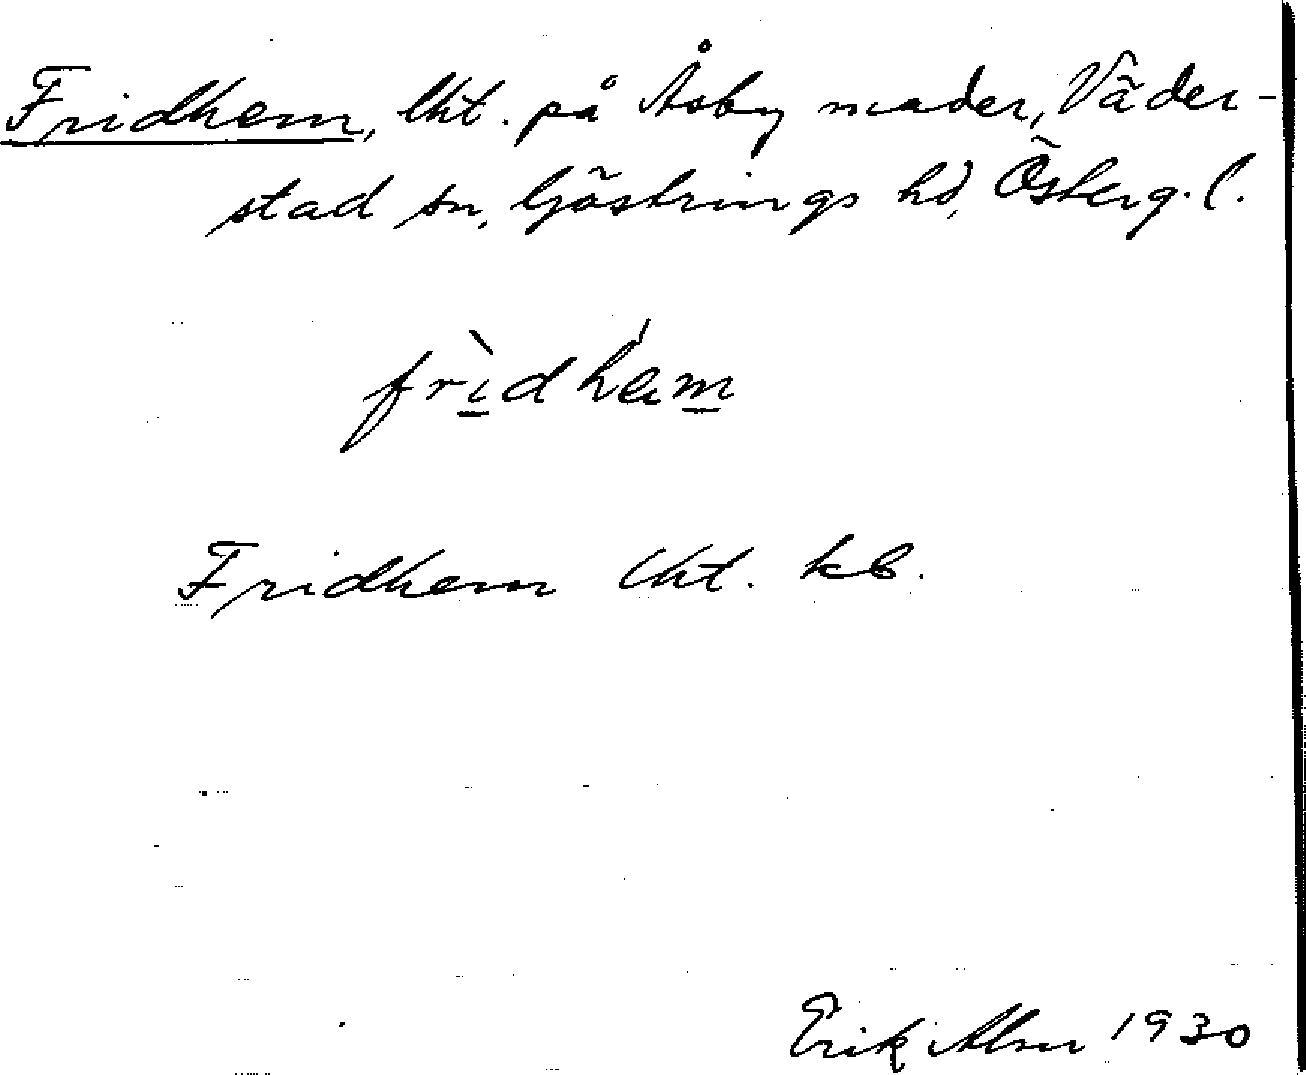 Fridhem, lht. på Åsby mader, Väder-
stad sn, Göstrings hd, Österg. l.
frìdhém
Fridhem lht. kb.
Erik Alner 1930